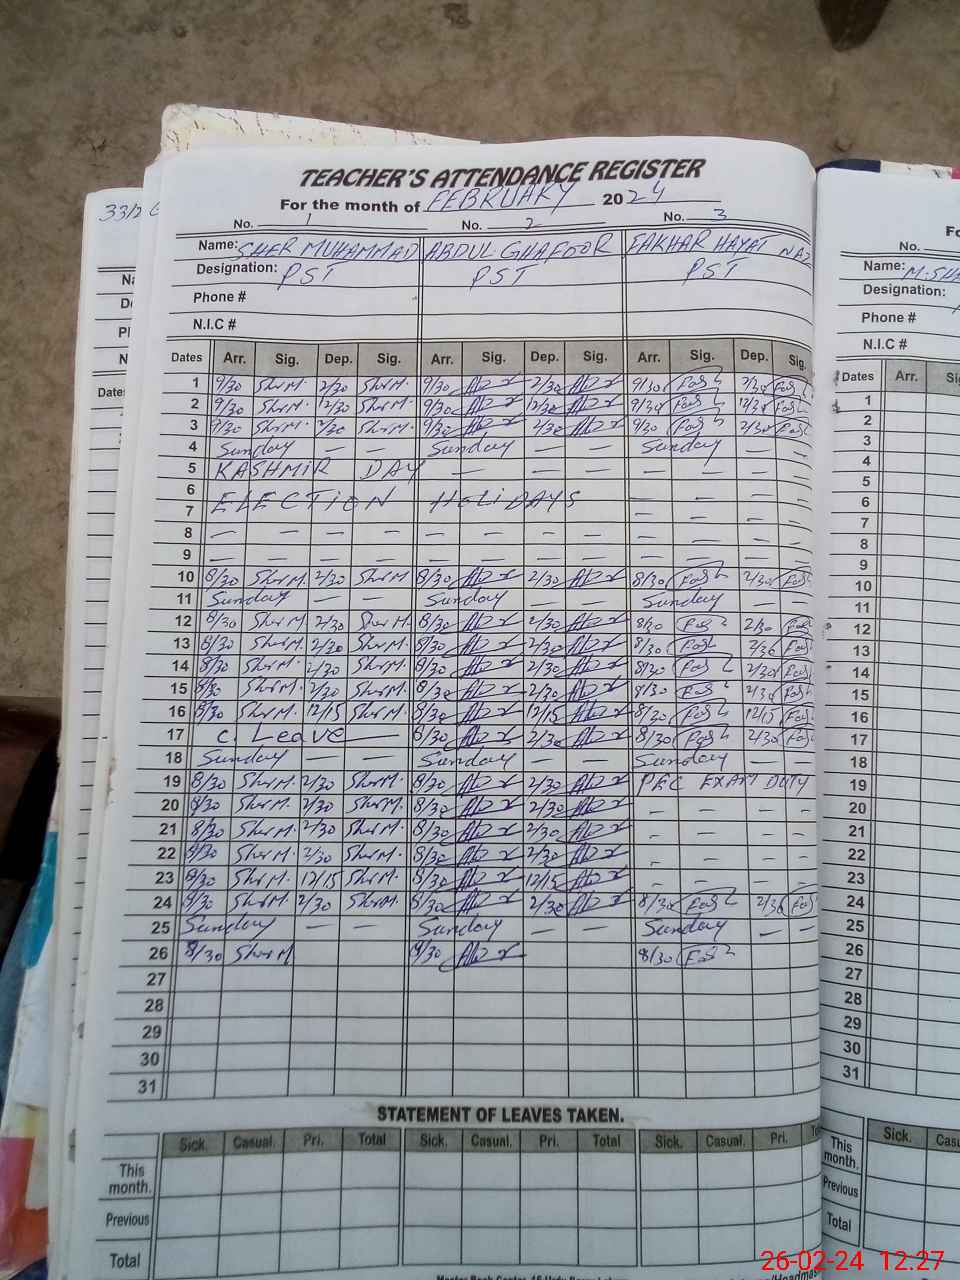 TEACHER'S ATTENDANCE REGISTER
For the month of FEBRUARY 2024
No. 1 No. 2 No. 3
Name: SHER MUHAMMAD ABDUL GHAFOOR FAKHAR HAYAT NAZ
Designation: PST PST PST
Phone #
N.I.C #
Dates Arr. Sig. Dep. Sig. Arr. Sig. Dep. Sig. Arr. Sig. Dep. Sig.
1 9/30 Sher M. 2/30 Sher M. 9/30 2/30 9/30 2/30
2 9/30 Sher M. 12/30 Sher M. 9/30 12/30 9/30 12/30
3 9/30 Sher M. 2/30 Sher M. 9/30 2/30 9/30 2/30
4 Sunday — — Sunday — — Sunday — —
5 KASHMIR DAY — — — — — —
6
7 ELECTION HOLIDAYS — — — —
8 — — — — — — — — — — — —
9 — — — — — — — — — — — —
10 8/30 Sher M. 2/30 Sher M. 8/30 2/30 8/30 2/30
11 Sunday — — Sunday — — Sunday — —
12 8/30 Sher M. 2/30 Sher M. 8/30 2/30 8/30 2/30
13 8/30 Sher M. 2/30 Sher M. 8/30 2/30 8/30 2/30
14 8/30 Sher M. 2/30 Sher M. 8/30 2/30 8/30 2/30
15 8/30 Sher M. 2/30 Sher M. 8/30 2/30 8/30 2/30
16 8/30 Sher M. 12/15 Sher M. 8/30 12/15 8/30 12/15
17 C. Leave — 8/30 2/30 8/30 2/30
18 Sunday — — Sunday — — Sunday — —
19 8/30 Sher M. 2/30 Sher M. 8/30 2/30 PEC EXAM DUTY
20 8/30 Sher M. 2/30 Sher M. 8/30 2/30 — — — —
21 8/30 Sher M. 2/30 Sher M. 8/30 2/30 — — — —
22 8/30 Sher M. 2/30 Sher M. 8/30 2/30 — — — —
23 8/30 Sher M. 12/15 Sher M. 8/30 12/15 — — — —
24 8/30 Sher M. 2/30 Sher M. 8/30 2/30 8/30 2/30
25 Sunday — — Sunday — — Sunday — —
26 8/30 Sher M 8/30 8/30
27
28
29
30
31
STATEMENT OF LEAVES TAKEN.
Sick. Casual. Pri. Total Sick. Casual. Pri. Total Sick. Casual. Pri.
This month.
Previous
Total
No.
Name: M. SHA
Designation:
Phone #
N.I.C #
Dates Arr.
1
2
3
4
5
6
7
8
9
10
11
12
13
14
15
16
17
18
19
20
21
22
23
24
25
26
27
28
29
30
31
Sick. Cas
This month.
Previous
Total
26-02-24 12:27